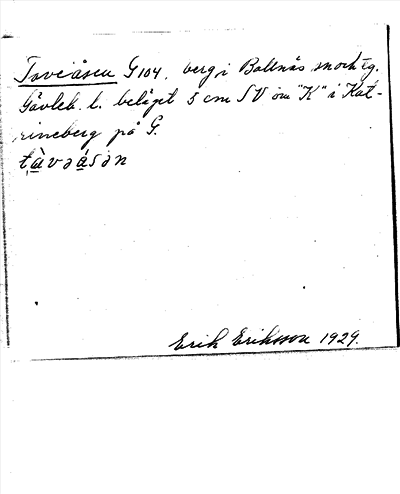 Taveåsen G104, berg i Bollnäs sn och tg.
Gävleb. l. beläget 5 cm SV om "K" i Kat-
rineberg på G.
tàvəásən
Erik Eriksson 1929.